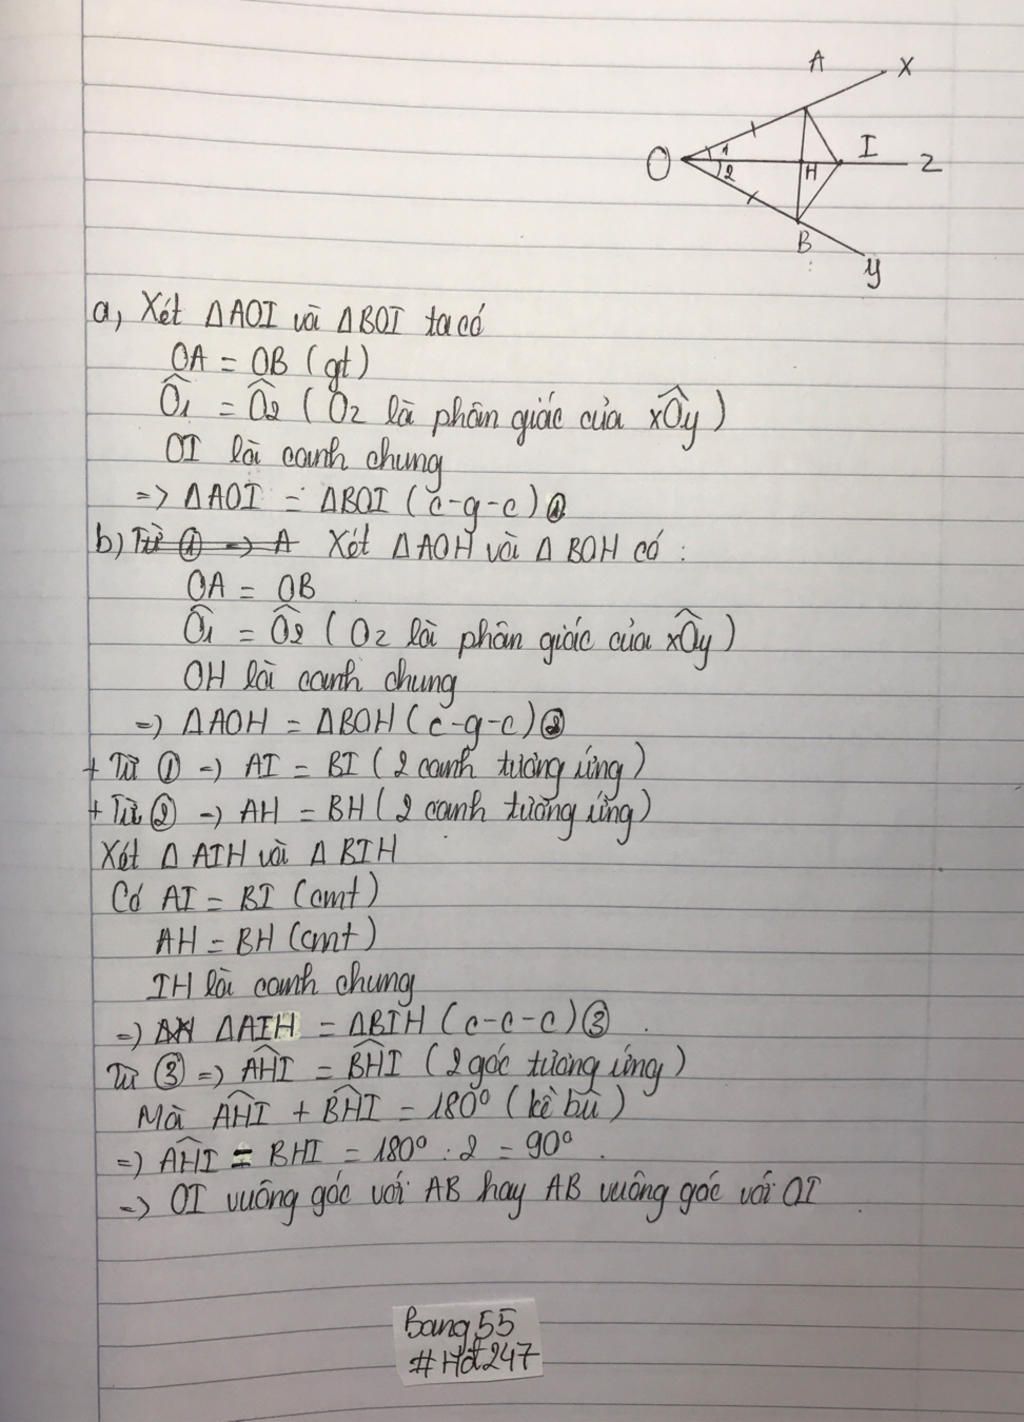 A
x
O
1
2
H
I
z
B
y
a, Xét ΔAOI và ΔBOI ta có
OA = OB (gt)
Ô1 = Ô2 (Oz là phân giác của xÔy)
OI là cạnh chung
=> ΔAOI = ΔBOI (c-g-c) ①
b) Từ ① => Δ Xét ΔAOH và ΔBOH có :
OA = OB
Ô1 = Ô2 (Oz là phân giác của xÔy)
OH là cạnh chung
=> ΔAOH = ΔBOH (c-g-c) ②
+ Từ ① => AI = BI (2 cạnh tương ứng)
+ Từ ② => AH = BH (2 cạnh tương ứng)
Xét ΔAIH và ΔBIH
Có AI = BI (cmt)
AH = BH (cmt)
IH là cạnh chung
=> ΔAIH = ΔBIH (c-c-c) ③
Từ ③ => AĤI = BĤI (2 góc tương ứng)
Mà AĤI + BĤI = 180° (kề bù)
=> AĤI = BHI = 180° : 2 = 90°
=> OI vuông góc với AB hay AB vuông góc với OI
Bang55
#Hđ247